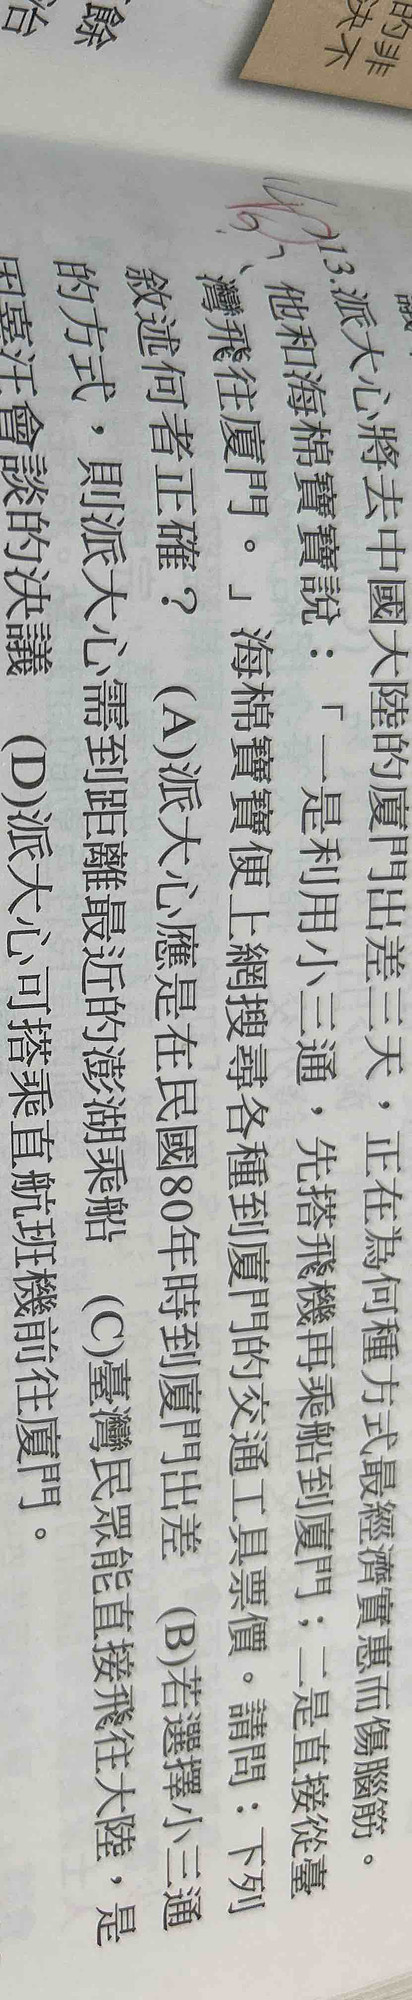 的非
決不
餘
治
13.派大心將去中國大陸的廈門出差三天，正在為何種方式最經濟實惠而傷腦筋。
他和海棉寶寶說：「一是利用小三通，先搭飛機再乘船到廈門；二是直接從臺
灣飛往廈門。」海棉寶寶便上網搜尋各種到廈門的交通工具票價。請問：下列
敘述何者正確？ (A)派大心應是在民國80年時到廈門出差 (B)若選擇小三通
的方式，則派大心需到距離最近的澎湖乘船 (C)臺灣民眾能直接飛往大陸，是
因辜汪會談的決議 (D)派大心可搭乘直航班機前往廈門。